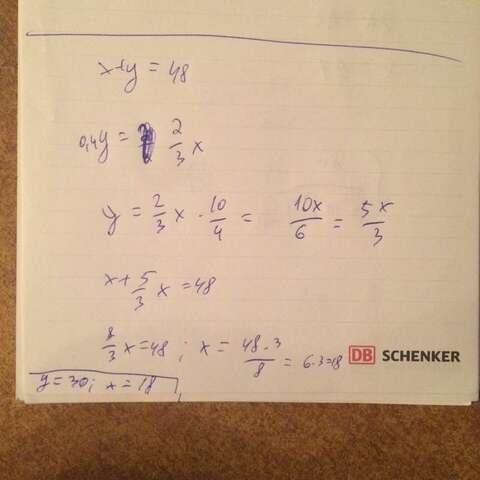 x+y = 48
0,4y = 2/3 x
y = 2/3 x · 10/4 = 10x/6 = 5x/3
x + 5/3 x = 48
8/3 x = 48 ; x = 48·3/8 = 6·3=18
DB SCHENKER
y = 30; x = 18